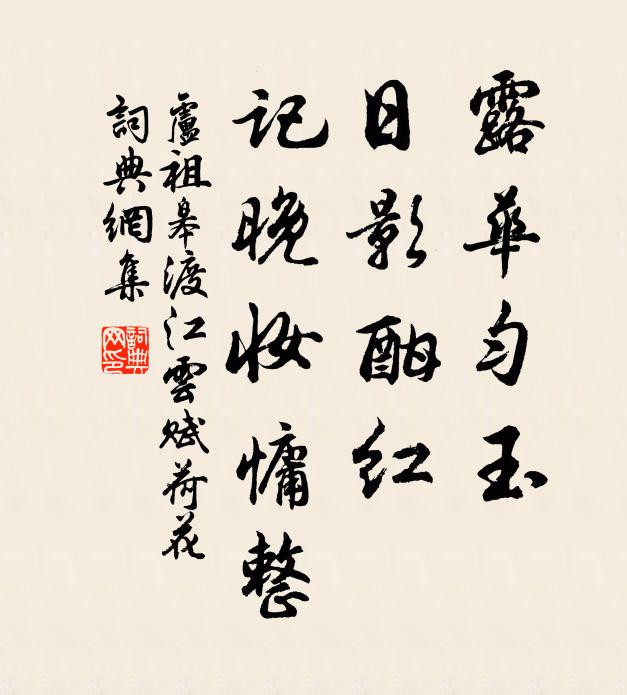 露華勻玉
日影酣紅
記晚妝慵整
盧祖皋渡江雲賦荷花
詞典網集
詞典網印